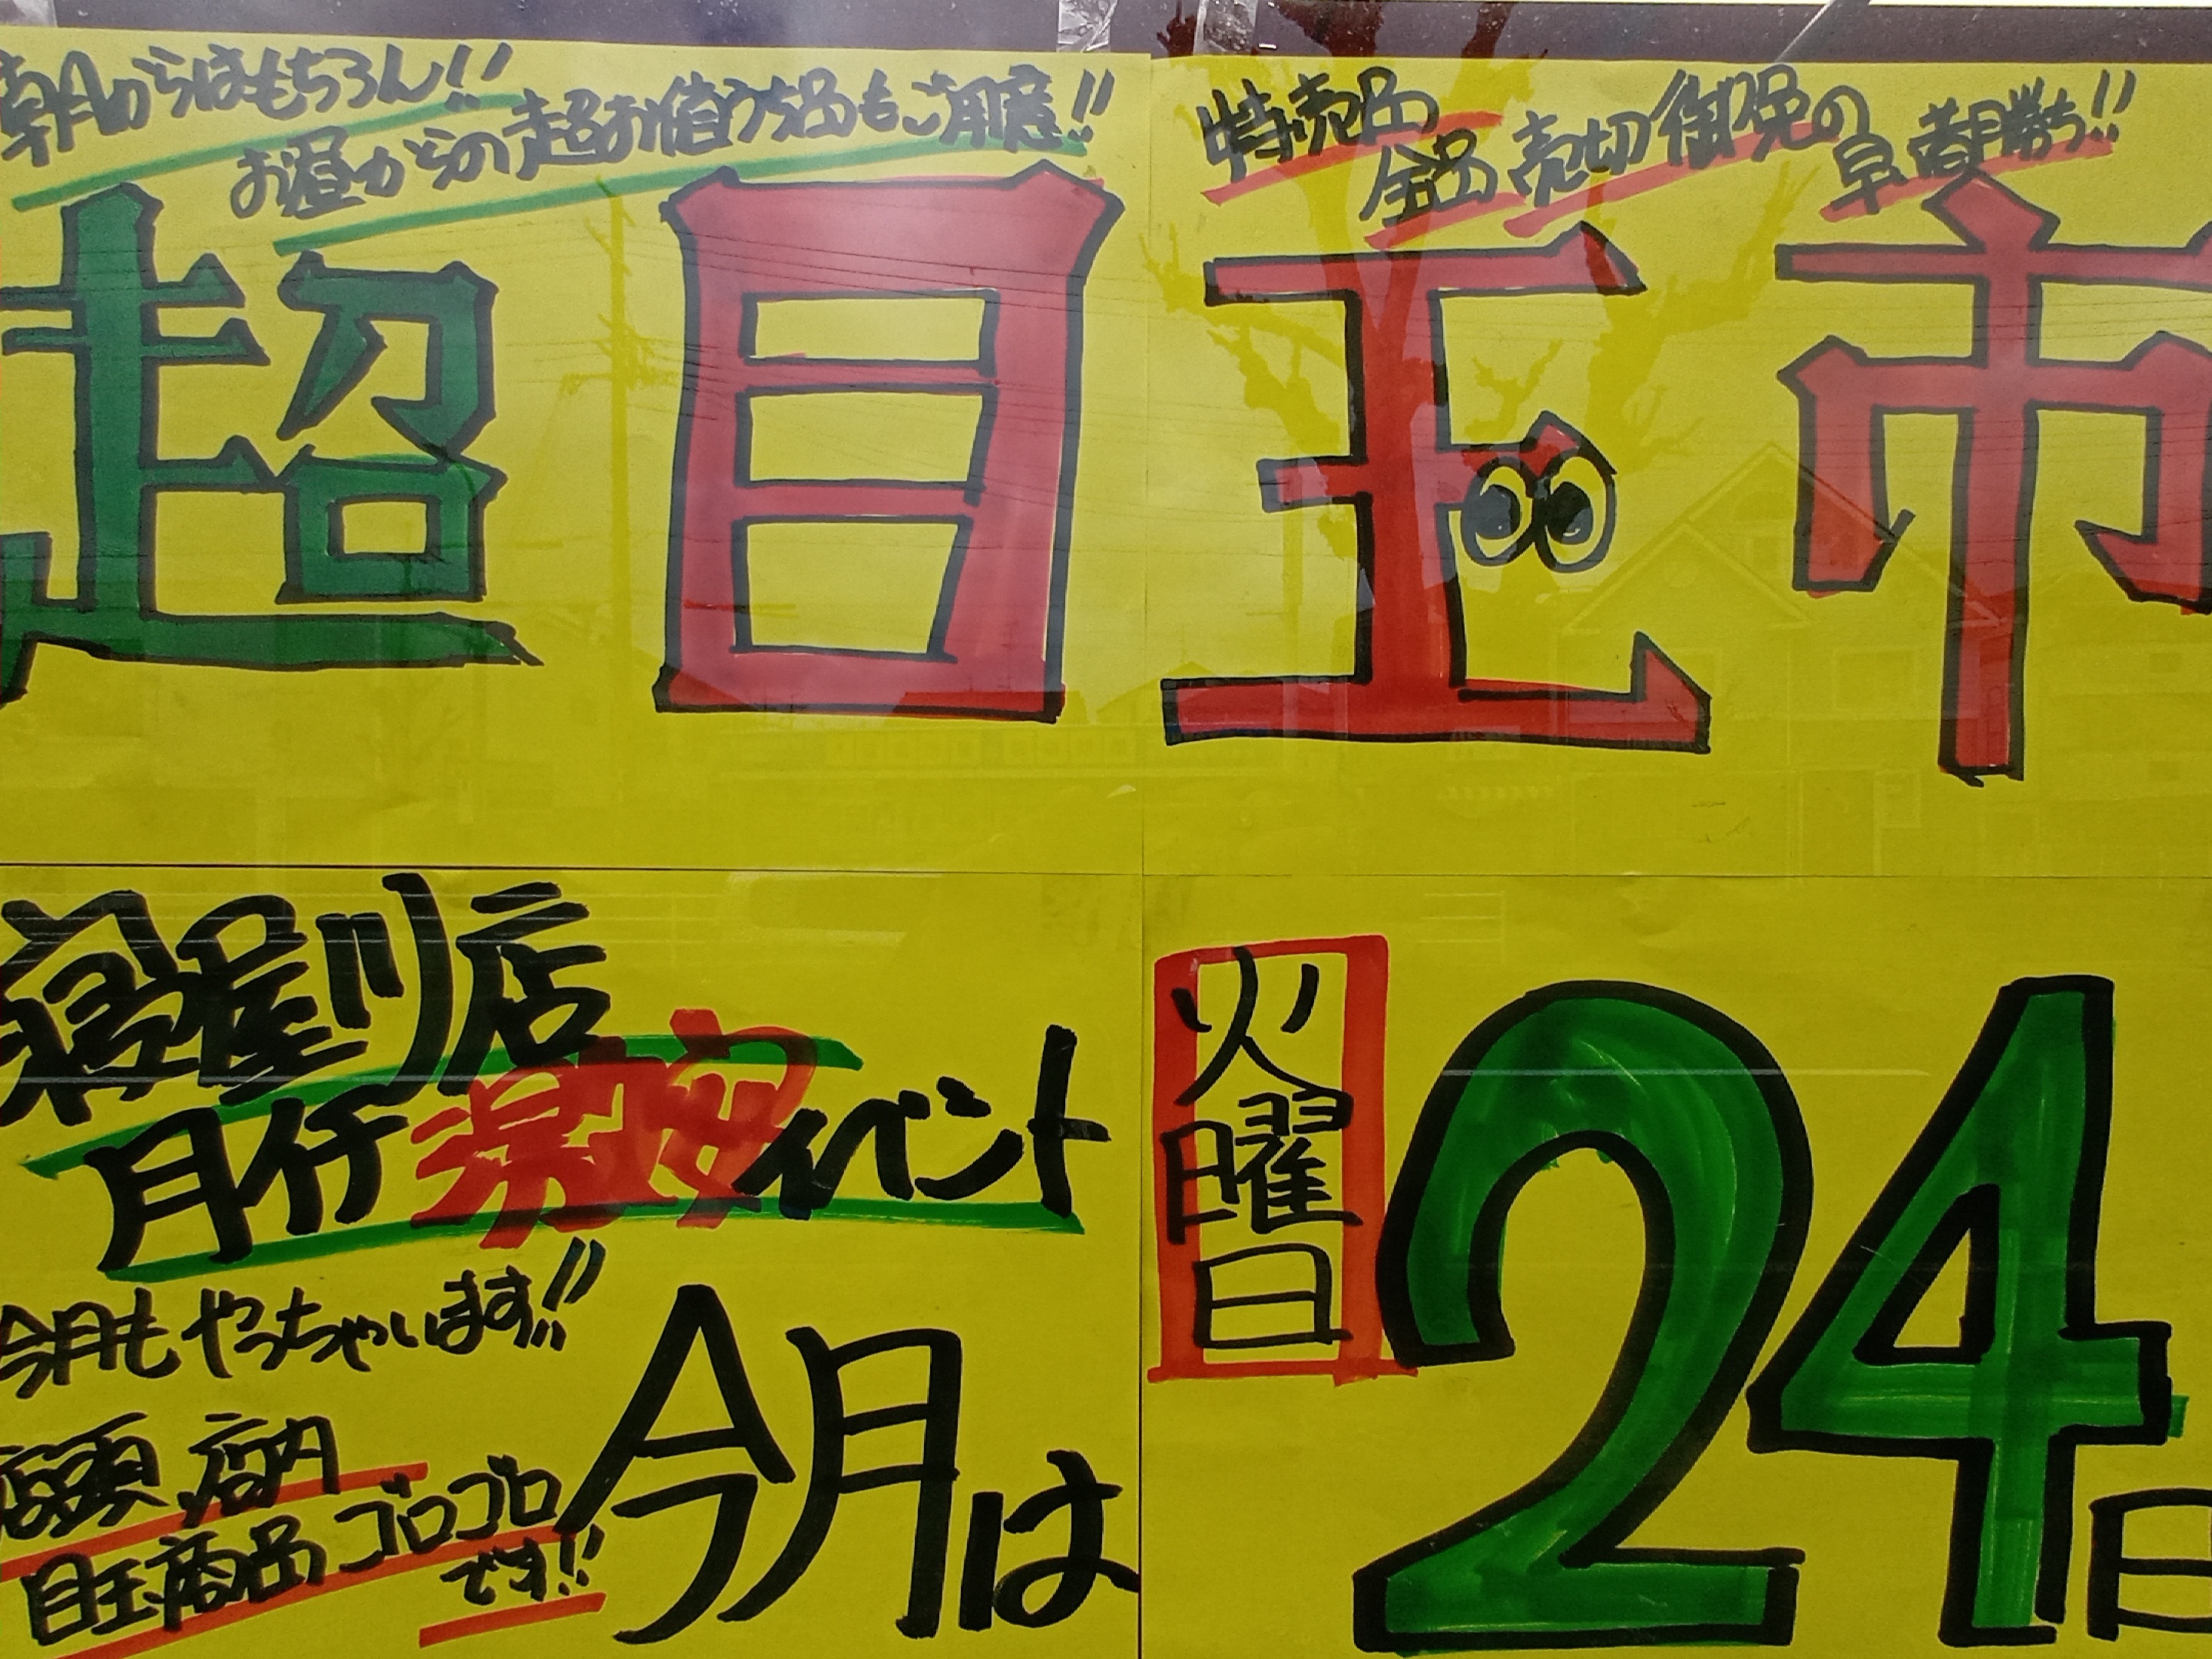 朝からはもちろん!!
お昼からの超お値うち品もご用意!!
特売品
全品売切御免の
早い者勝ち!!
超目玉市
寝屋川店
月イチ激安イベント
今月もやっちゃいます!!
店頭、店内
目玉商品ゴロゴロ
です!!
今月は
火曜日
24日